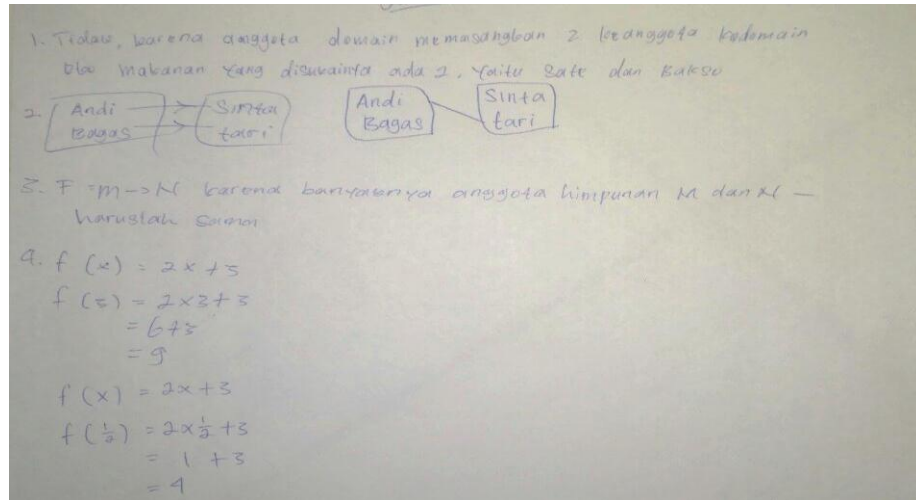 1. Tidak, karena anggota domain memasangkan 2 keanggota kodomain
bla makanan yang disukainya ada 2, Yaitu Sate dan Bakso
2. Andi Sinta Andi Sinta
Bagas tari Bagas tari
3. F = m -> N karena banyaknya anggota himpunan M dan N —
haruslah Sama
4. f (x) = 2x + 3
f (3) = 2x3 + 3
= 6+3
= 9
f (x) = 2x + 3
f (1/2) = 2x1/2 + 3
= 1 + 3
= 4